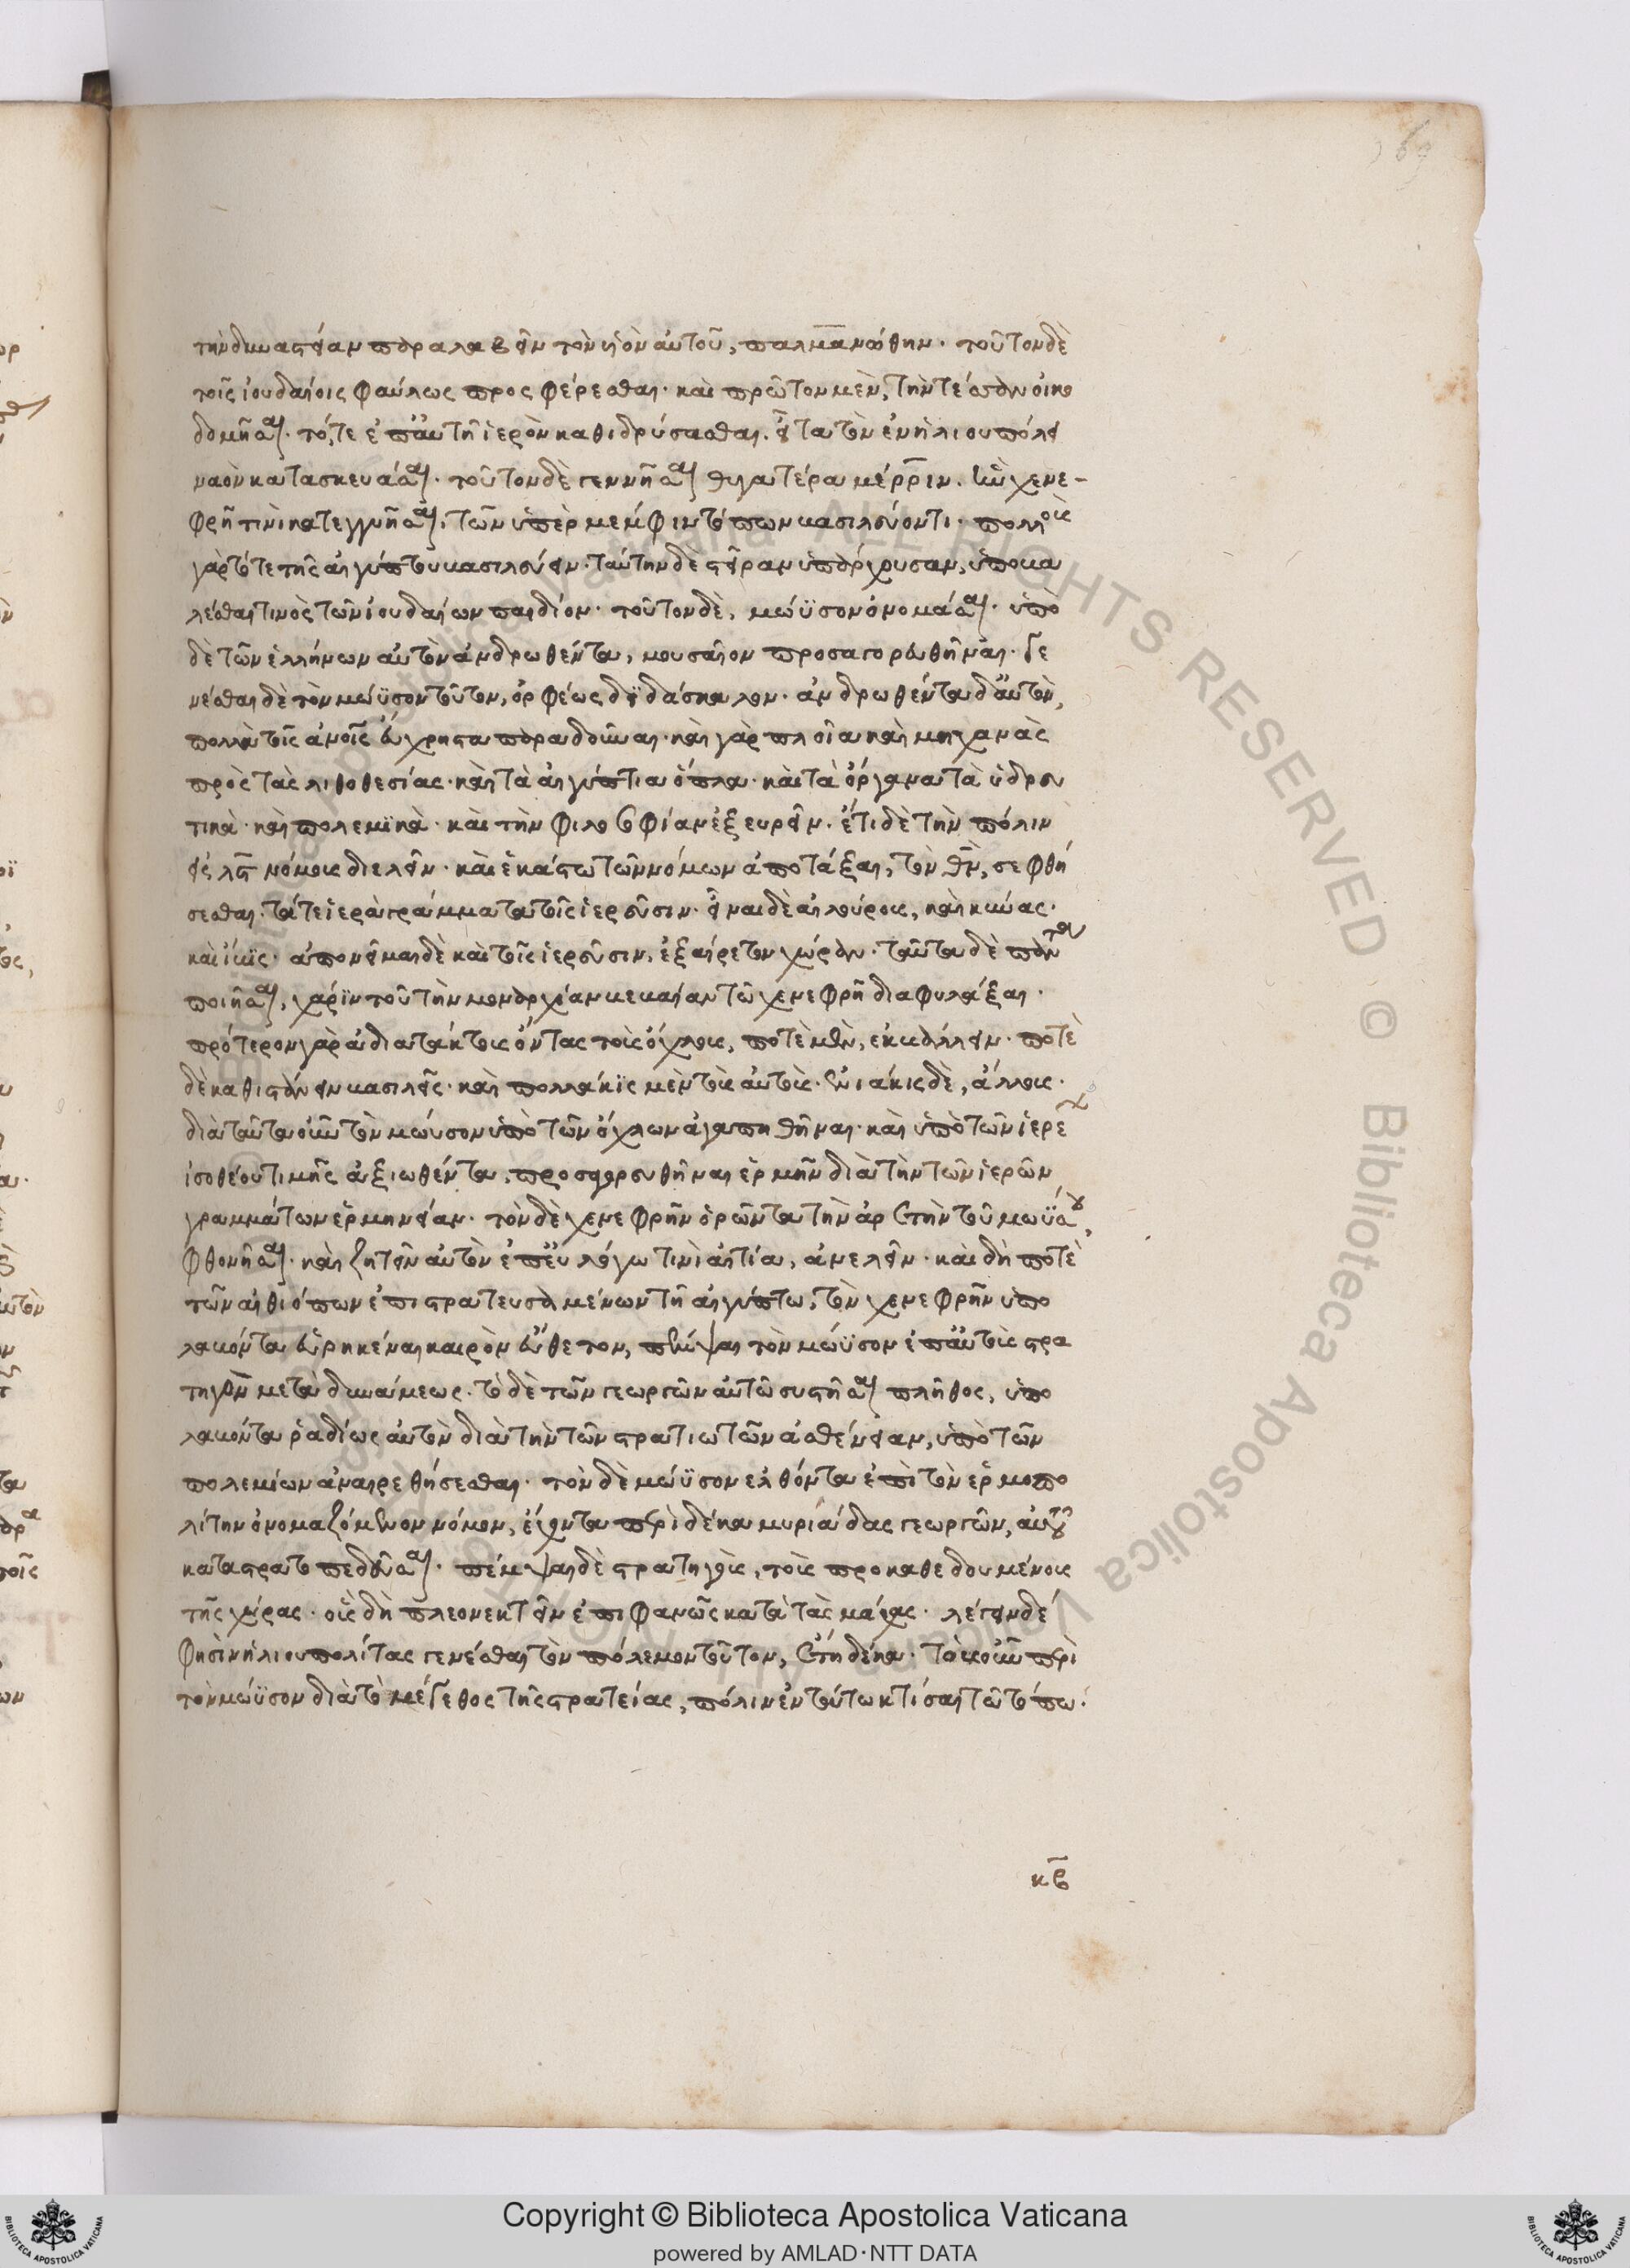 169
τὴν δυναστείαν παραλαβεῖν τὸν υἱὸν αὐτοῦ, παλμανώθην. τοῦτον δὲ
τοῖς ἰουδαίοις φαύλως προσφέρεσθαι. καὶ πρῶτον μὲν, τήν τε οἰκο
δομῆσαι. τό, τε ἐπ' αὐτῇ ἱερὸν καθιδρύσασθαι. εἶτα τὸν ἐν ἡλιουπόλει
ναὸν κατασκευάσαι. τοῦτον δὲ γεννῆσαι θυγατέρα μέρριν. ἣν χενε-
φρῇ τινὶ κατεγγυῆσαι, τῶν ὑπὲρ μέμφιν τόπων βασιλεύοντι. πολλοὺς
γὰρ τότε τῆς αἰγύπτου βασιλεύειν. ταύτην δὲ στεῖραν ὑπάρχουσαν, ὑποβα
λέσθαι τινὸς τῶν ἰουδαίων παιδίον. τοῦτον δὲ, μώϋσον ὀνομάσαι. ὑπὸ
δὲ τῶν ἑλλήνων αὐτὸν ἀνδρωθέντα, μουσαῖον προσαγορευθῆναι. γε
νέσθαι δὲ τὸν μώϋσον τοῦτον, ὀρφέως διδάσκαλον. ἀνδρωθέντα δ' αὐτὸν,
πολλὰ τοῖς ἀνοις εὔχρηστα παραδοῦναι. καὶ γὰρ πλοῖα καὶ μηχανὰς
πρὸς τὰς λιθοθεσίας. καὶ τὰ αἰγύπτια ὅπλα. καὶ τὰ ὄργανα τὰ ὑδρευ
τικὰ. καὶ πολεμϊκὰ. καὶ τὴν φιλοσοφίαν ἐξευρεῖν. ἔτι δὲ τὴν πόλιν
εἰς λϛ νόμους διελεῖν. καὶ ἑκάστω τῶν νόμων ἀποτάξαι, τὸν θν, σεφθή
σεσθαι. τά τε ἱερὰ γράμματα τοῖς ἱερεῦσιν. εἶναι δὲ αἰλούρους, καὶ κύνας.
καὶ ἴβϊς. ἀπονεῖμαι δὲ καὶ τοῖς ἱερεῦσιν, ἐξαίρετον χώραν. ταῦτα δὲ πάντα
ποιῆσαι, χάρϊν τοῦ τὴν μοναρχίαν βεβαίαν τῶ χενεφρῇ διαφυλάξαι.
πρότερον γὰρ ἀδιατάκτους ὄντας τοὺς ὄχλους, ποτὲ μὲν, ἐκβάλλειν. ποτὲ
δὲ καθιστάνειν βασιλεῖς. καὶ πολλάκϊς μὲν τοὺς αὐτοὺς. ἐνιάκις δὲ, ἄλλους.
διὰ ταῦτα οὖν τὸν μώυσον ὑπὸ τῶν ὄχλων ἀγαπηθῆναι. καὶ ὑπὸ τῶν ἱερέων
ἰσοθέου τιμῆς ἀξιωθέντα, προσαγορευθῆναι ἑρμῆν διὰ τὴν τῶν ἱερῶν
γραμμάτων ἑρμηνείαν. τὸν δὲ χενεφρῆν ὁρῶντα τὴν ἀρετὴν τοῦ μωϋσου,
φθονῆσαι. καὶ ζητεῖν αὐτὸν ἐπ' εὐλόγω τινὶ αἰτία, ἀνελεῖν. καὶ δή ποτὲ
τῶν αἰθιόπων ἐπιστρατευσαμένων τῇ αἰγύπτω, τὸν χενεφρῆν ὑπο
λαβόντα εὑρηκέναι καιρὸν εὔθετον, πέμψαι τὸν μώϋσον ἐπ' αὐτοὺς στρα
τηγὸν μετὰ δυνάμεως. τὸ δὲ τῶν γεωργῶν αὐτῶ συστῆσαι πλῆθος, ὑπο
λαβόντα ῥαδίως αὐτὸν διὰ τὴν τῶν στρατιωτῶν ἀσθένειαν, ὑπὸ τῶν
πολεμίων ἀναιρεθήσεσθαι. τὸν δὲ μώϋσον ἐλθόντα ἐπὶ τὸν ἑρμοπο
λίτην ὀνομαζόμενον νόμον, ἔχοντα περὶ δέκα μυριάδας γεωργῶν, αὐτοῦ
καταστρατοπεδεῦσαι. πέμψαι δὲ στρατηγοὺς, τοὺς προκαθεδουμένους
τῆς χώρας. οὓς δὴ πλεονεκτεῖν ἐπιφανῶς κατὰ τὰς μάχας. λέγειν δέ
φησὶν ἡλιουπολίτας γενέσθαι τὸν πόλεμον τοῦτον, ἔτη δέκα. τοὺς οὖν περὶ
τὸν μώϋσον διὰ τὸ μέγεθος τῆς στρατείας, πόλιν ἐν τούτω κτίσαι τῶ τόπω.
κβ
Copyright © Biblioteca Apostolica Vaticana
powered by AMLAD·NTT DATA